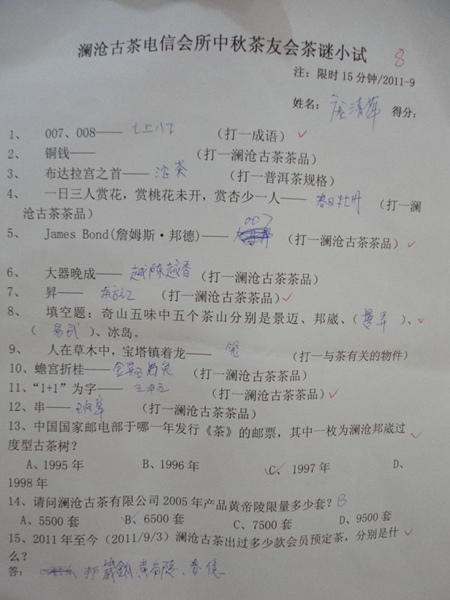 澜沧古茶电信会所中秋茶友会茶谜小试 8
注：限时15分钟/2011-9
姓名： 得分：
1、 007、008—— 七上八下 （打一成语）
2、 铜钱—— （打一澜沧古茶茶品）
3、 布达拉宫之首—— （打一普洱茶规格）
4、 一日三人赏花，赏桃花未开，赏杏少一人—— 春日牡丹 （打一澜
沧古茶茶品）
5、 James Bond(詹姆斯·邦德)—— 007 （打一澜沧古茶茶品）
6、 大器晚成—— 越陈越香 （打一澜沧古茶茶品）
7、 昇—— （打一澜沧古茶茶品）
8、 填空题：奇山五味中五个茶山分别是景迈、邦崴、（ ）、
（ 易武 ）、冰岛。
9、 人在草木中，宝塔镇着龙—— （打一与茶有关的物件）
10、蟾宫折桂—— （打一澜沧古茶茶品）
11、“1+1”为字—— （打一澜沧古茶茶品）
12、串—— （打一澜沧古茶茶品）
13、中国国家邮电部于哪一年发行《茶》的邮票，其中一枚为澜沧邦崴过
度型古茶树？
A、1995年 B、1996年 C、1997年 D、
1998年
14、请问澜沧古茶有限公司2005年产品黄帝陵限量多少套？ B
A、5500套 B、6500套 C、7500套 D、9500套
15、2011年至今（2011/9/3）澜沧古茶出过多少款会员预定茶，分别是什
么？
答：